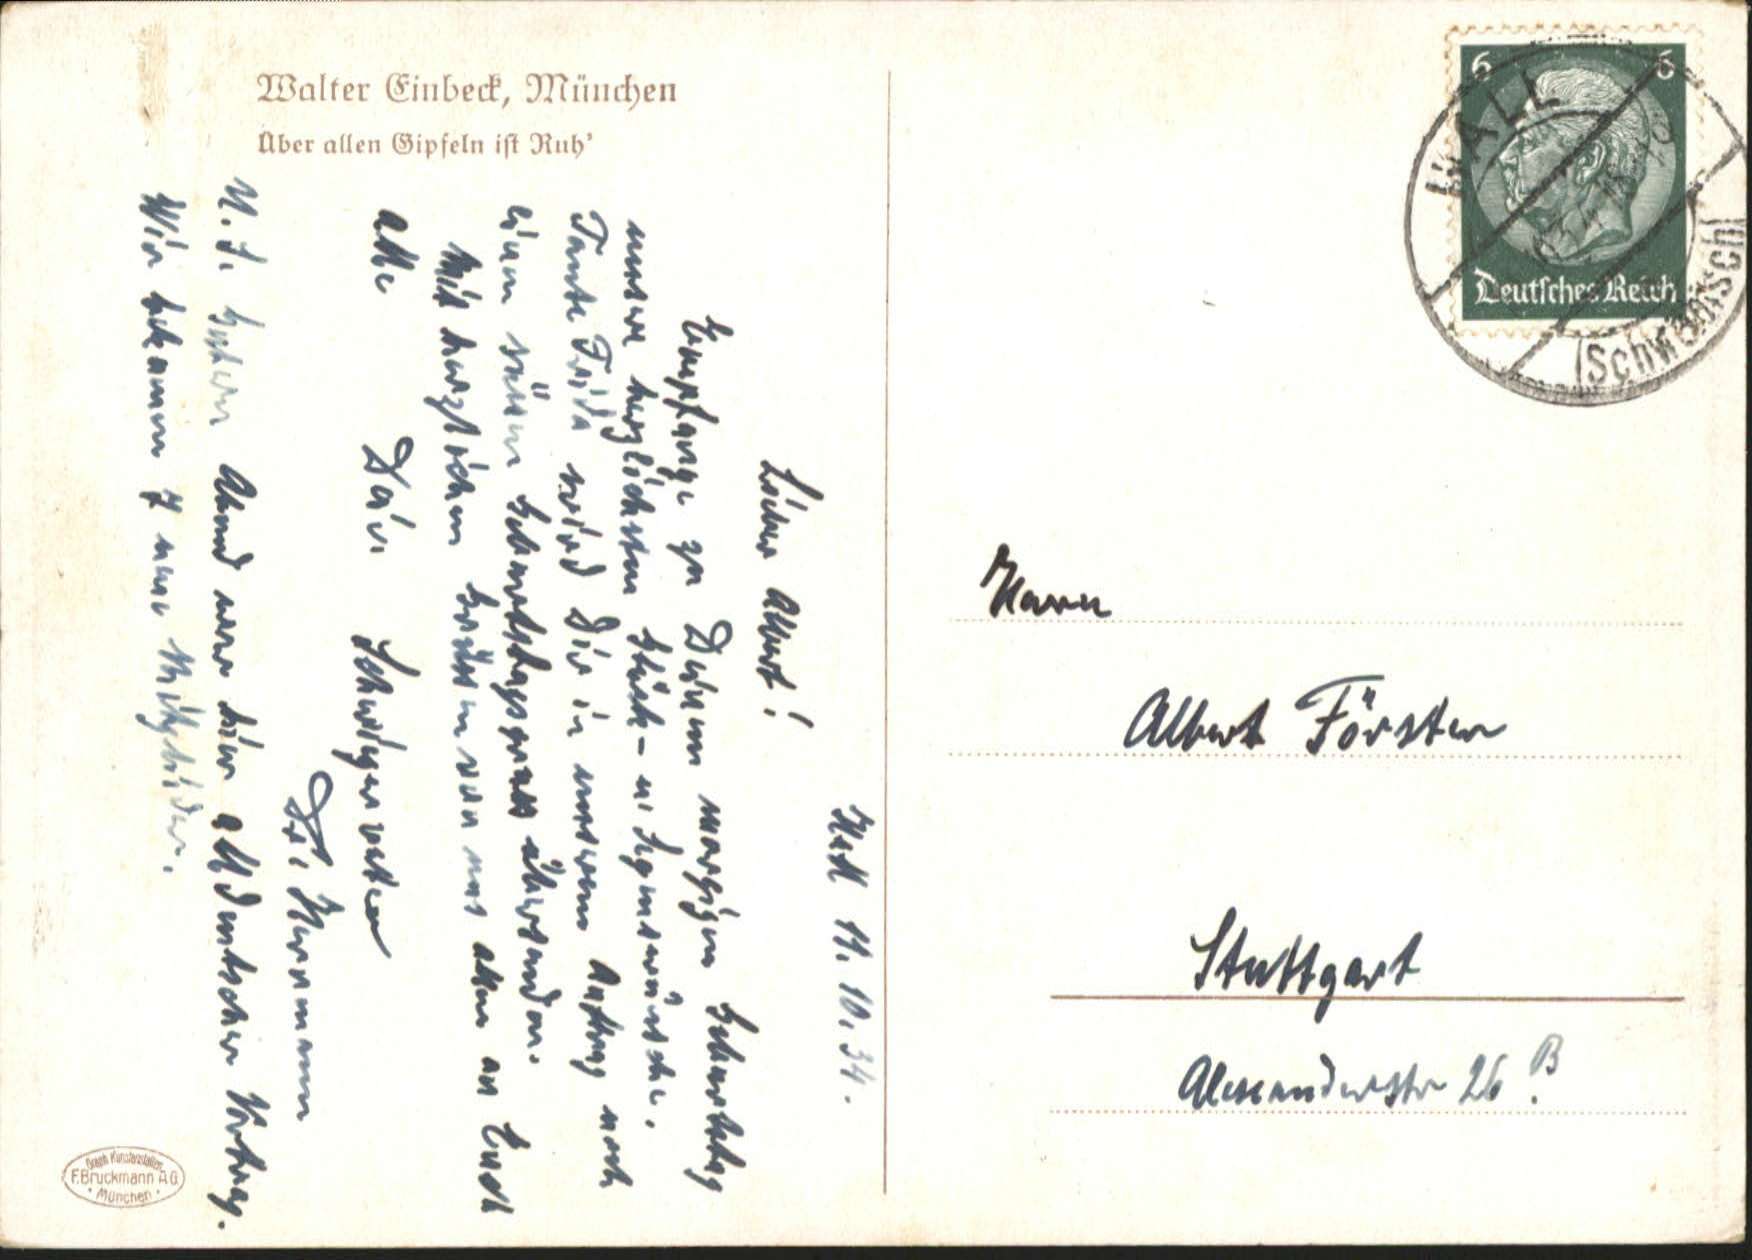 Walter Einbeck, München
Über allen Gipfeln ist Ruh'
Hall 11.10.34.
Lieber Albert!
Empfange zu Deinem morgigen Geburtstag
unsere herzlichsten Glück- u. Segenswünsche.
Tante Frida wird Dir in unserem Auftrag noch
einen süßen Geburtstagsgruss übersenden.
Mit herzlichen Grüssen von uns allen an Euch
alle Dein Schwiegervater
Dr. Hermann
N.S. Gestern Abend war hier alldeutscher Vortrag.
Wir bekamen 7 neue Mitglieder.
Graph. Kunstanstalten
F. Bruckmann A.G.
München
6 6
Deutsches Reich
HALL
(Schwäbisch)
Herrn
Albert Förster
Stuttgart
Alexanderstr 26 B.